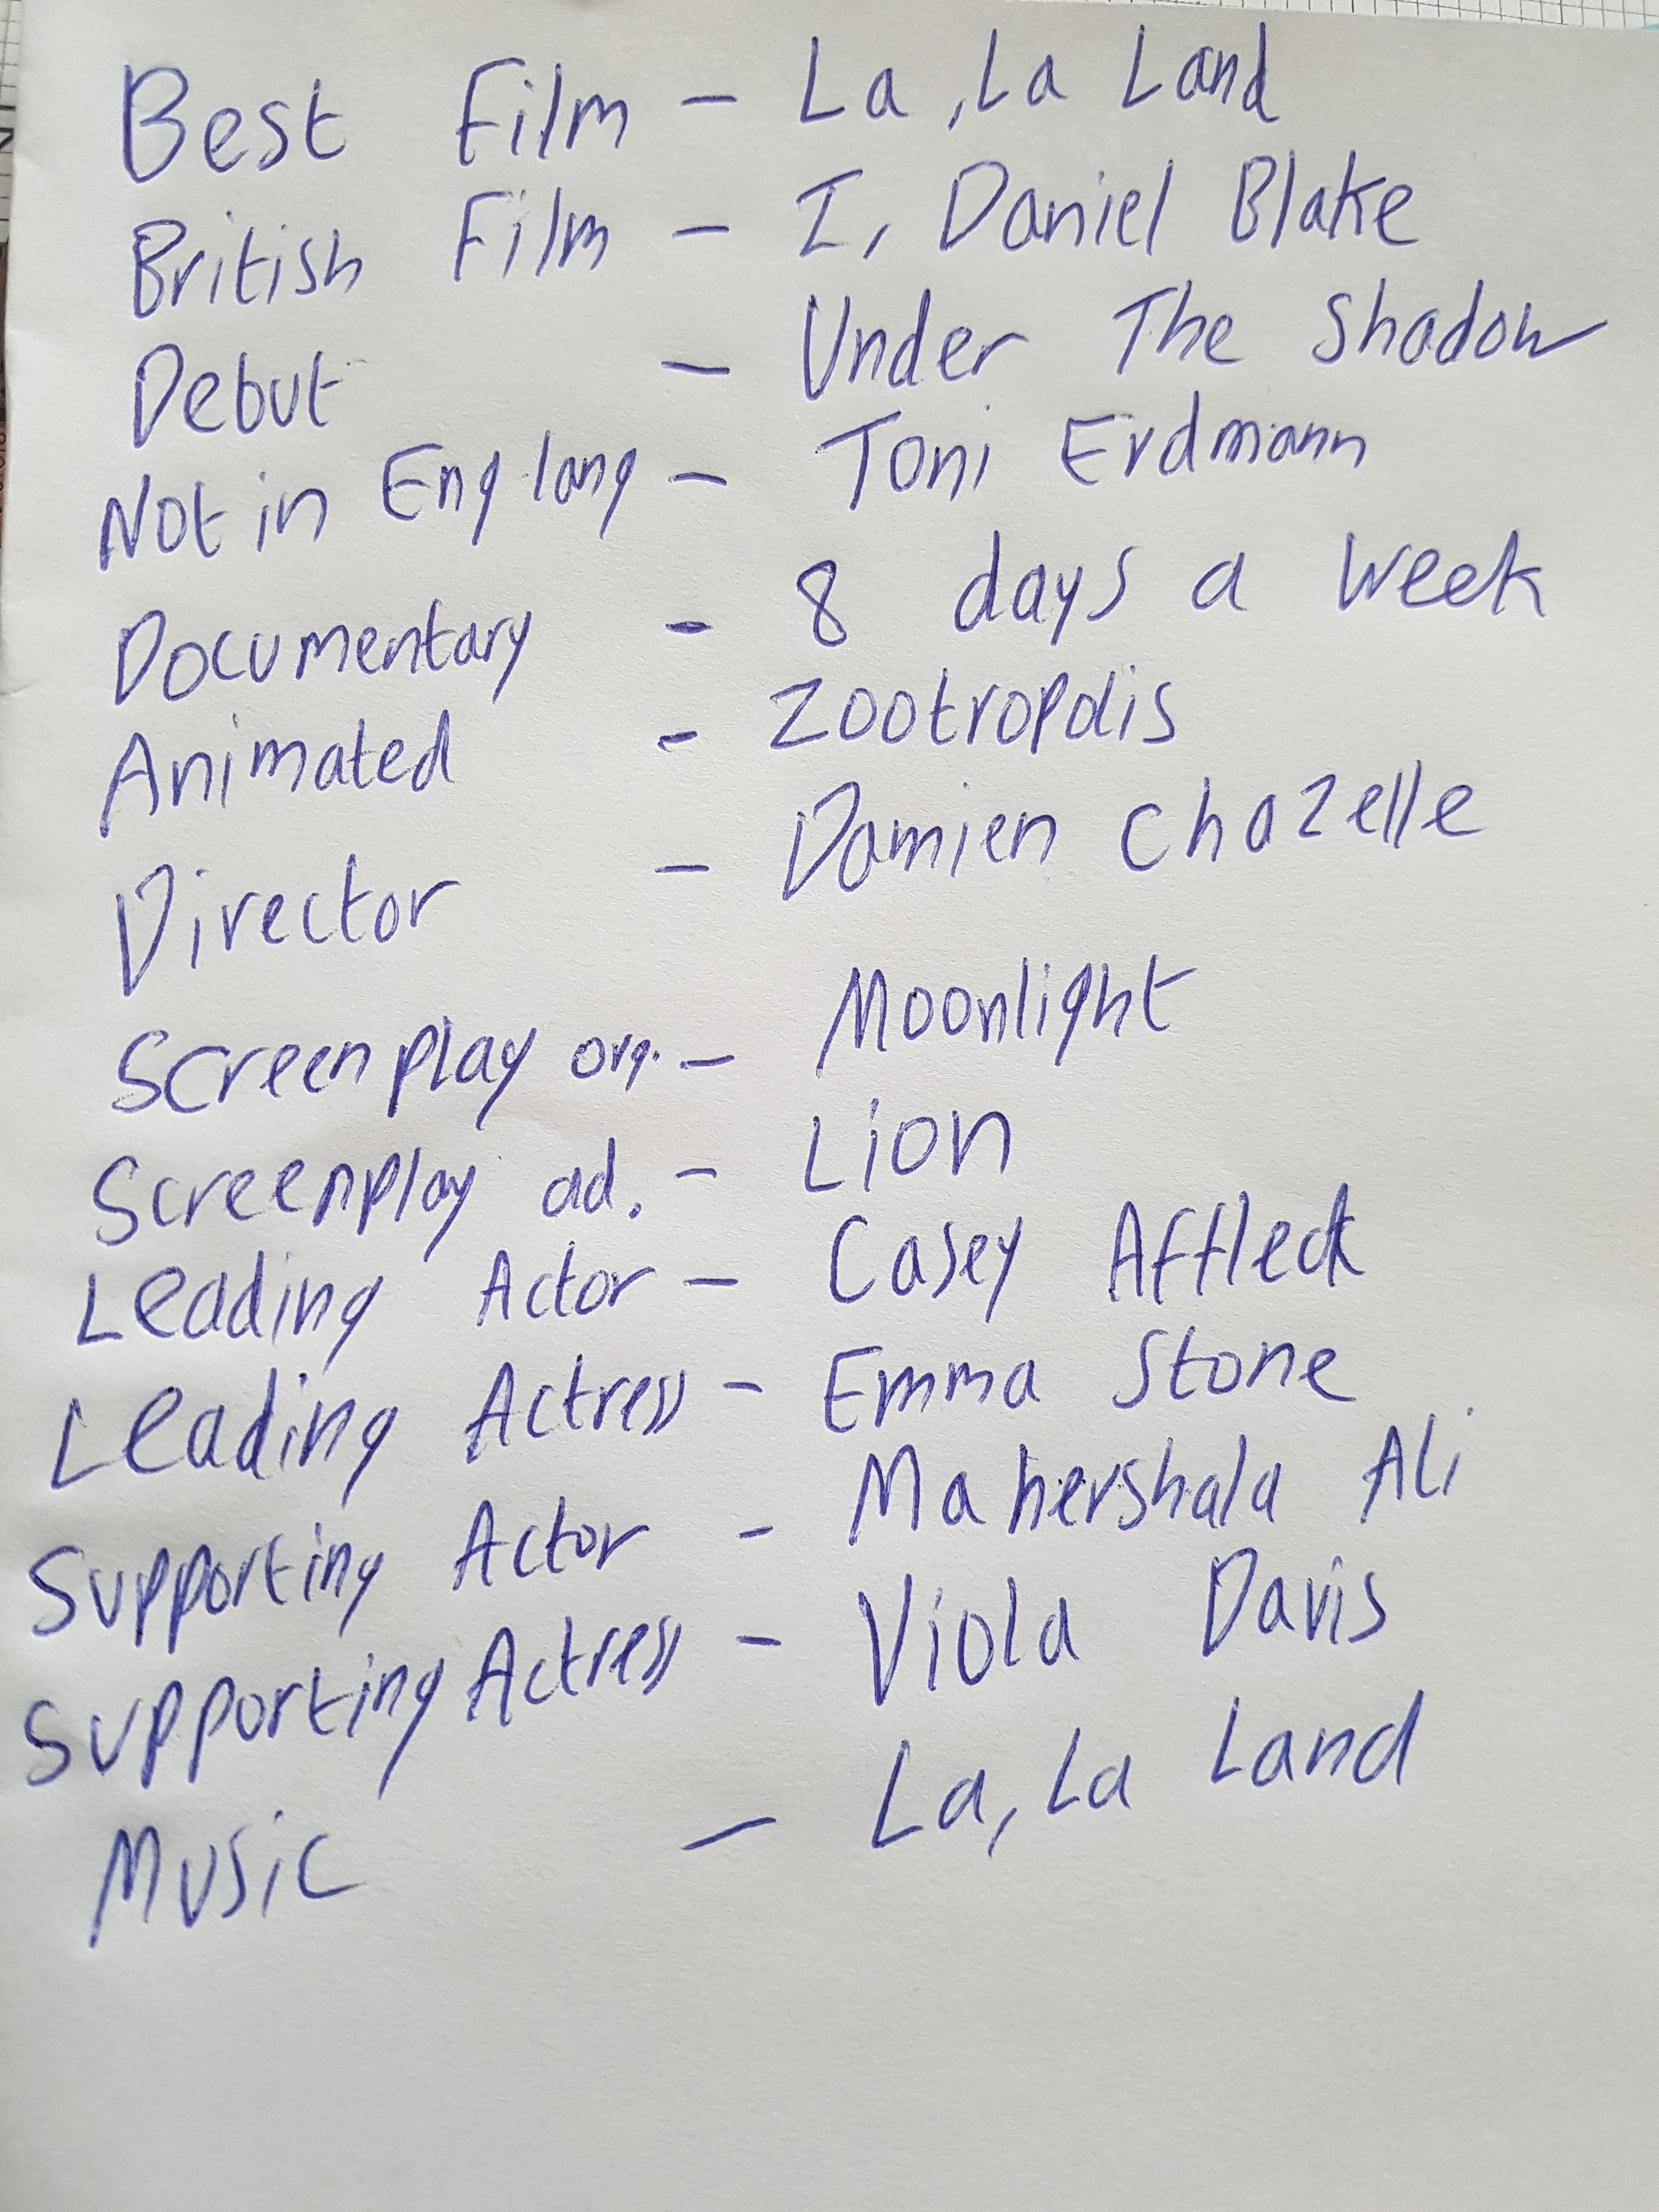 Best Film - La, La Land
British Film - I, Daniel Blake
Debut - Under The Shadow
Not in Eng lang - Toni Erdmann
Documentary - 8 days a week
Animated - Zootropolis
Director - Damien Chazelle
Screenplay org. - Moonlight
Screenplay ad. - Lion
Leading Actor - Casey Affleck
Leading Actress - Emma Stone
Supporting Actor - Mahershala Ali
Supporting Actress - Viola Davis
Music - La, La Land